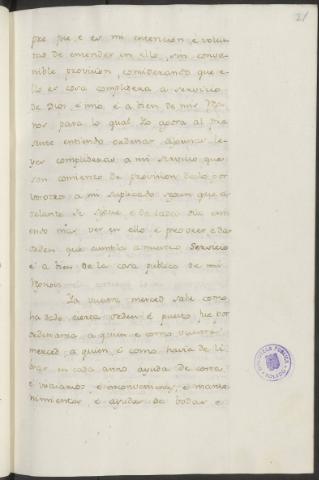 21
pre fue, e es mi entencion, e volun-
tad de entender en ello, con conve-
nible provision, considerando que e-
llo es cosa complidera a servicio
de Dios, e mio, e a bien de mis Rey-
nos para lo qual Yo agora al pre-
sente entiendo ordenar algunas le-
yes complideras a mi servicio que
son comienzo de provision dello por
vosotros a mi suplicado segun que a-
delante se sigue, e de cada dia enti-
endo mas ver en ello e proveer e da-
orden que cumpla a nuestro Servicio
e a bien de la cosa publica de mis
Reynos
Ya vuestra merced sabe como
ha dado cierta orden e puerto fue por
ordenanza, a quien e como vuestra
merced, a quien, e como havia de li-
brar en cada anno ayuda de costa,
e vestuarios, e mante-
nimientos, e ayuda de bodas e
BIBLIOTECA PUBLICA
TOLEDO